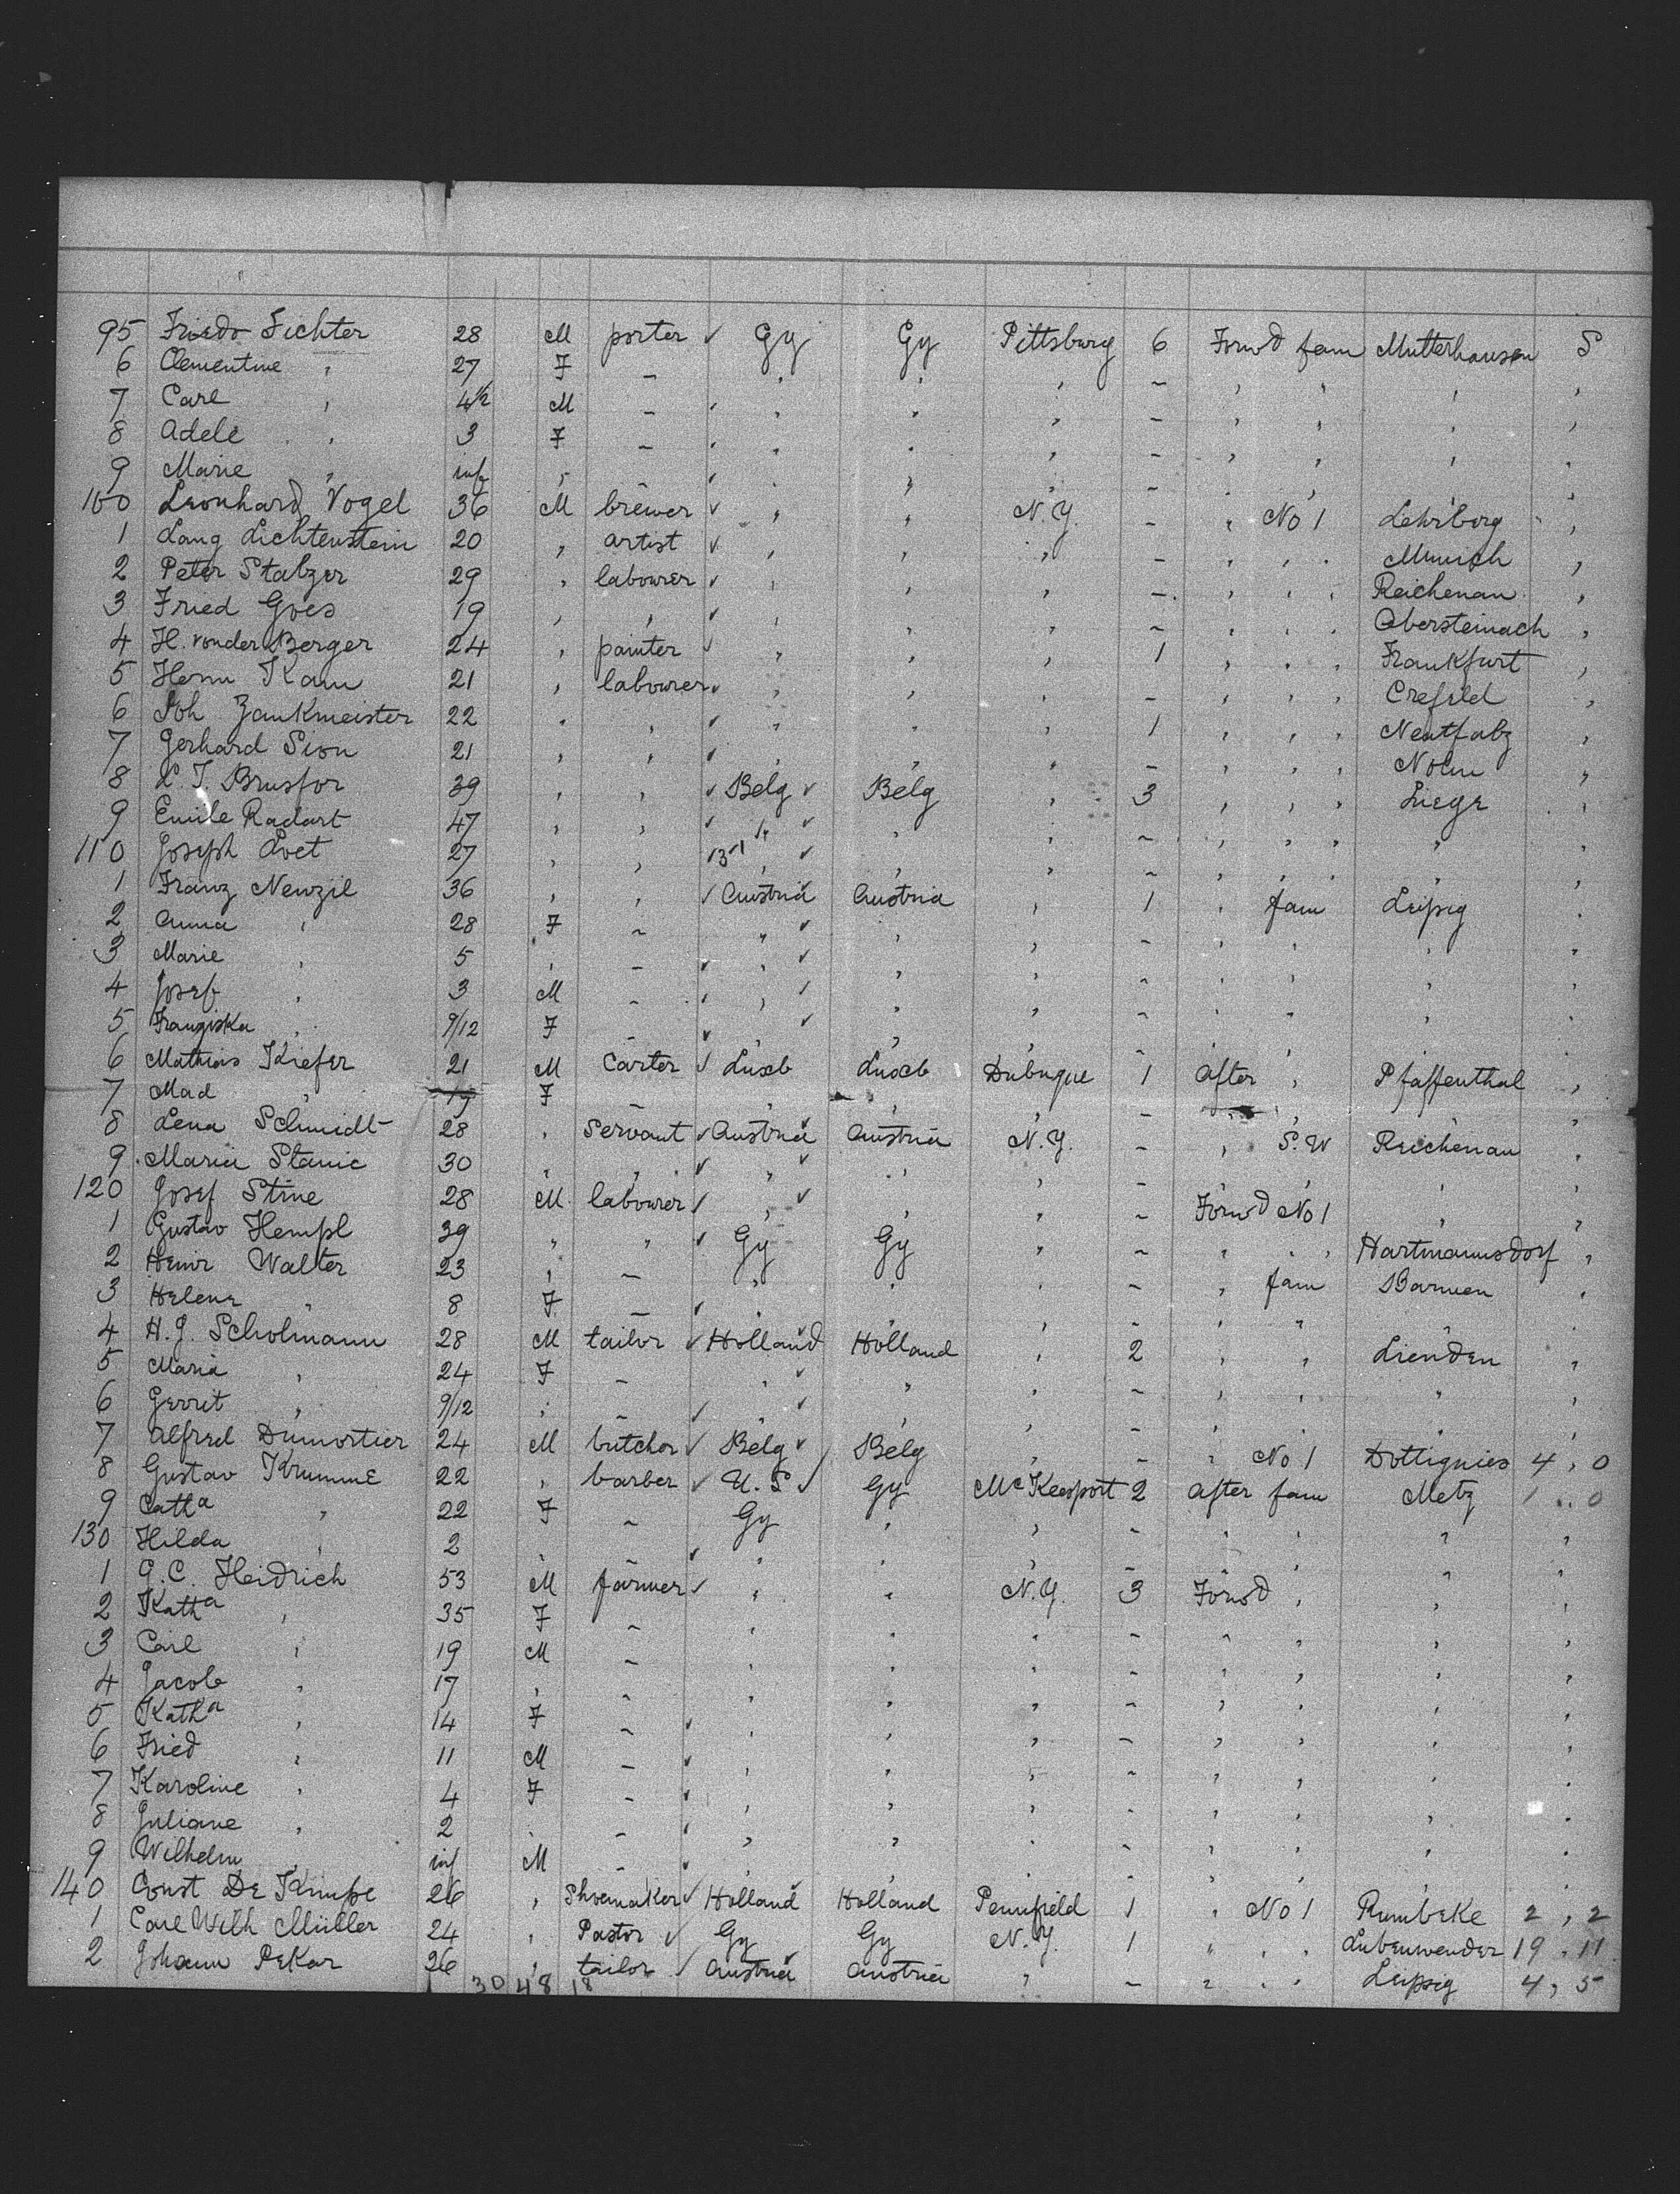 95 Friedr Fichter 28 M porter ✓ Gy Gy Pittsburg 6 Forwd fam Mutterhausen S
6 Clementine " 27 F - " " " - " " " "
7 Carl " 4½ M - " " " - " " " "
8 Adele " 3 F - " " " - " " " "
9 Marie " inf " " " " - " " " "
100 Leonhard Vogel 36 M brewer ✓ " " N.Y. - " No 1 Lehrberg "
1 Lang Lichtenstein 20 " artist ✓ " " " - " " Munich "
2 Peter Stalzer 29 " labourer ✓ " " " - " " Reichenau "
3 Fried Goes 19 " " ✓ " " " - " " Obersteinach "
4 H. vonder Berger 24 " painter ✓ " " " 1 " " Frankfurt "
5 Herm Kam 21 " labourer ✓ " " " - " " Crefeld "
6 Joh Zankmeister 22 " " ✓ " " " 1 " " "
7 Gerhard Sion 21 " " ✓ " " " - " " "
8 L. T. Brusfor 39 " " ✓ Belg ✓ Belg " 3 " " Liege "
9 Emile Radart 47 " " ✓ " ✓ " " - " " " "
110 Joseph Loet 27 " " ✓ " ✓ " " - " " " "
1 Franz Newzil 36 " " ✓ Austria ✓ Austria " 1 " fam Leipsig "
2 Anna " 28 F - " ✓ " " - " " " "
3 Marie " 5 " - ✓ " ✓ " " - " " " "
4 Josef " 3 M - " " ✓ " " - " " " "
5 Franziska " 9/12 F ✓ ✓ " " - " " " "
6 Mathias Kiefer 21 M Carter ✓ Luxb Luxb Dubuque 1 After " Pfaffenthal "
7 Mad " 19 F - " " " - " " " "
8 Lena Schmidt 28 " Servant ✓ Austria Austria N.Y. - " S.W Reichenau "
9 Maria Stanic 30 " " ✓ " ✓ " " - " " " "
120 Josef Stine 28 M labourer ✓ " ✓ " " - Forwd No 1 " "
1 Gustav Hempl 39 " " ✓ Gy Gy " - " " Hartmannsdorf "
2 Heinr Walter 23 " - " " " - " fam Barmen "
3 Helene " 8 F - ✓ " " " - " " " "
4 H. J. Scholmann 28 M tailor ✓ Holland Holland " 2 " " Lienden "
5 Maria " 24 F - " ✓ " " - " " " "
6 Gerrit " 9/12 " - ✓ " ✓ " " - " " " "
7 Alfred Dumortier 24 M butcher ✓ Belg ✓ Belg " - " No 1 Dottignies 4 , 0
8 Gustav Krumme 22 " barber ✓ U. S ✓ Gy McKeesport 2 After fam Metz 1 .. 0
9 Catha " 22 F - Gy " " - " " " "
130 Hilda " 2 " - ✓ " " " - " " " "
1 G. C. Heidrich 53 M farmer ✓ " " N.Y. 3 Forwd " " "
2 Katha " 35 F - " " " - " " " "
3 Carl " 19 M - " " " - " " " "
4 Jacob " 17 " - " " " - " " " "
5 Katha " 14 F - ✓ " " " - " " " "
6 Fried " 11 M - ✓ " " " - " " " "
7 Karoline " 4 F - ✓ " " " - " " " "
8 Juliane " 2 " - ✓ " " " - " " " "
9 Wilhelm " inf M - ✓ " " " - " " " "
140 Const De Kimpe 26 " Shoemaker ✓ Holland Holland Pennfield 1 " No 1 Rumbeke 2 , 2
1 Carl Wilh Müller 24 " Pastor ✓ Gy Gy N.Y. 1 " " 19 , 11
2 Johann Pekar 26 " tailor ✓ Austria Austria " - " " Leipsig 4 , 5
1 30 48 18